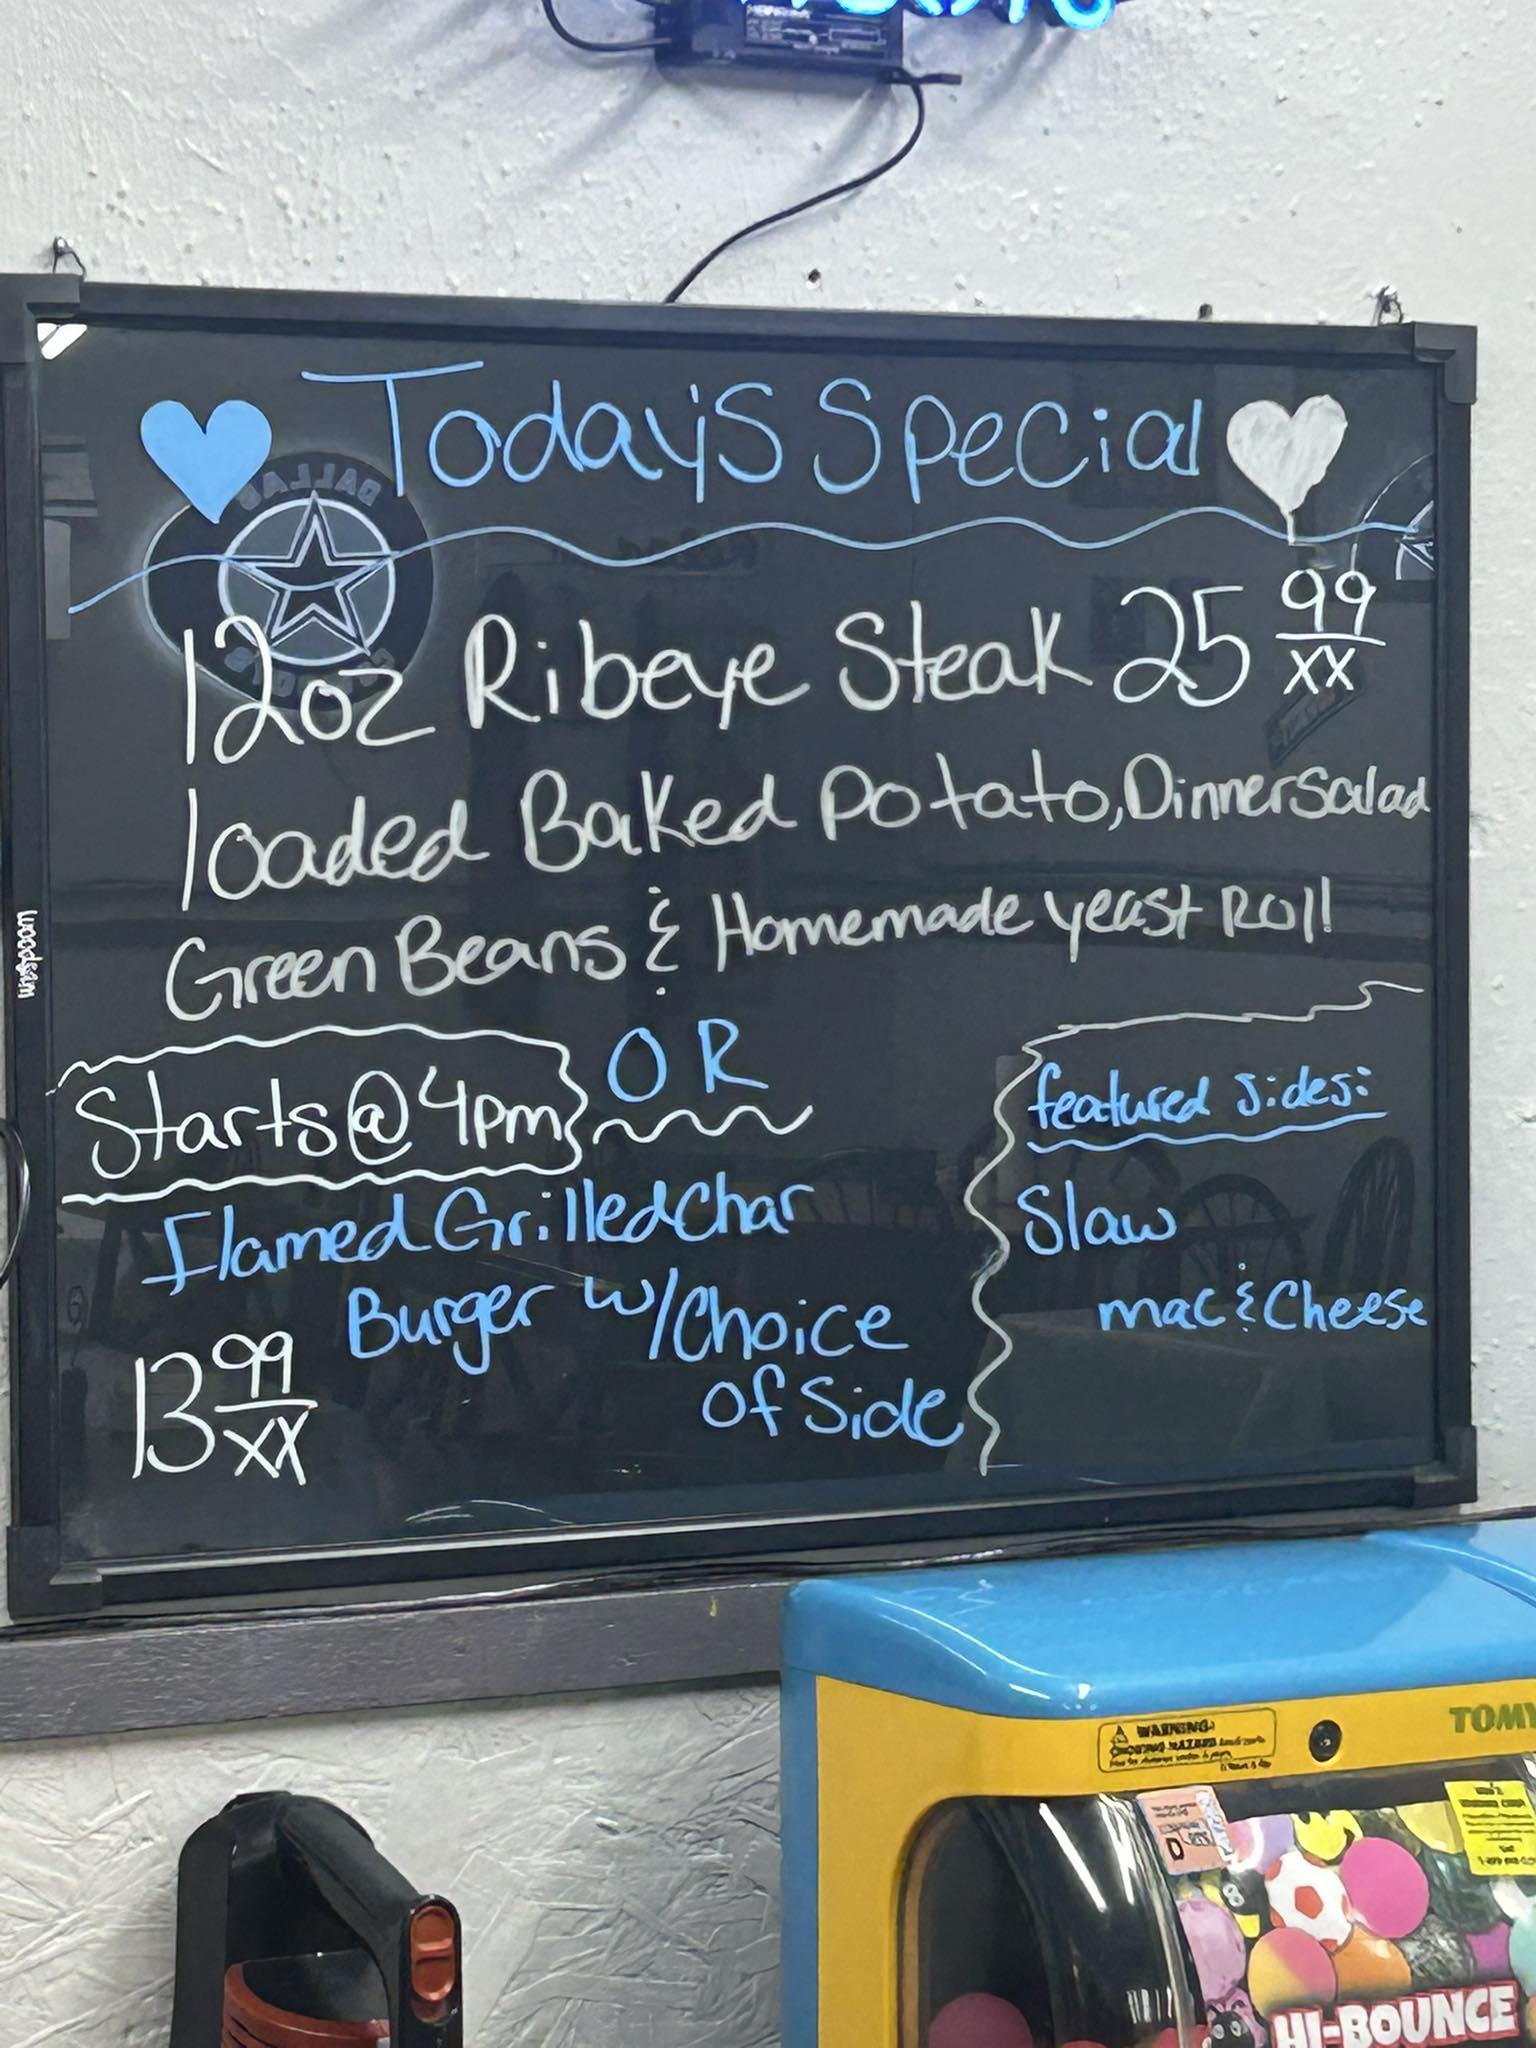 Today's Special
12oz Ribeye Steak 25 99/xx
loaded Baked Potato, Dinner Salad
Green Beans & Homemade yeast Roll
Starts @ 4pm
OR
Flamed Grilled Char
Burger w/Choice
of Side
13 99/xx
featured sides:
Slaw
mac & Cheese
woodsam
DALLAS
TOMY
WARNING:
CHOKING HAZARD
HI-BOUNCE